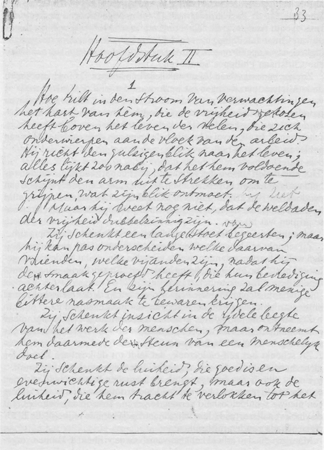 83
Hoofdstuk II
1
Hoe trilt in den stroom van verwachtingen
het hart van hem, die de vrijheid gekozen
heeft boven het leven der velen, die zich
onderwierpen aan de vloek van den arbeid.
Hij richt den gulzigen blik naar het leven;
alles lijkt zoo nabij, dat het hem voldoende
schijnt den arm uit te strekken, om te
grijpen wat zijn blik ontmoet.
Maar hij weet nog niet, dat de weldaden
der vrijheid dubbelzinnig zijn.
Zij schenkt een lange stoet begeerten; maar
hij kan pas onderscheiden welke daarvan
vrienden, welke vijanden zijn, nadat hij
de smaak geproefd heeft, die hun bevrediging
achterlaat. En zijn herinnering zal menige
bittere nasmaak te bewaren krijgen.
Zij schenkt inzicht in de ijdele leegte
van het werk der menschen, maar ontneemt
hem daarmede den steun van een menschelijk
doel.
Zij schenkt de luiheid, die goed is en
evenwichtige rust brengt, maar ook de
luiheid, die hem tracht te verlokken tot het